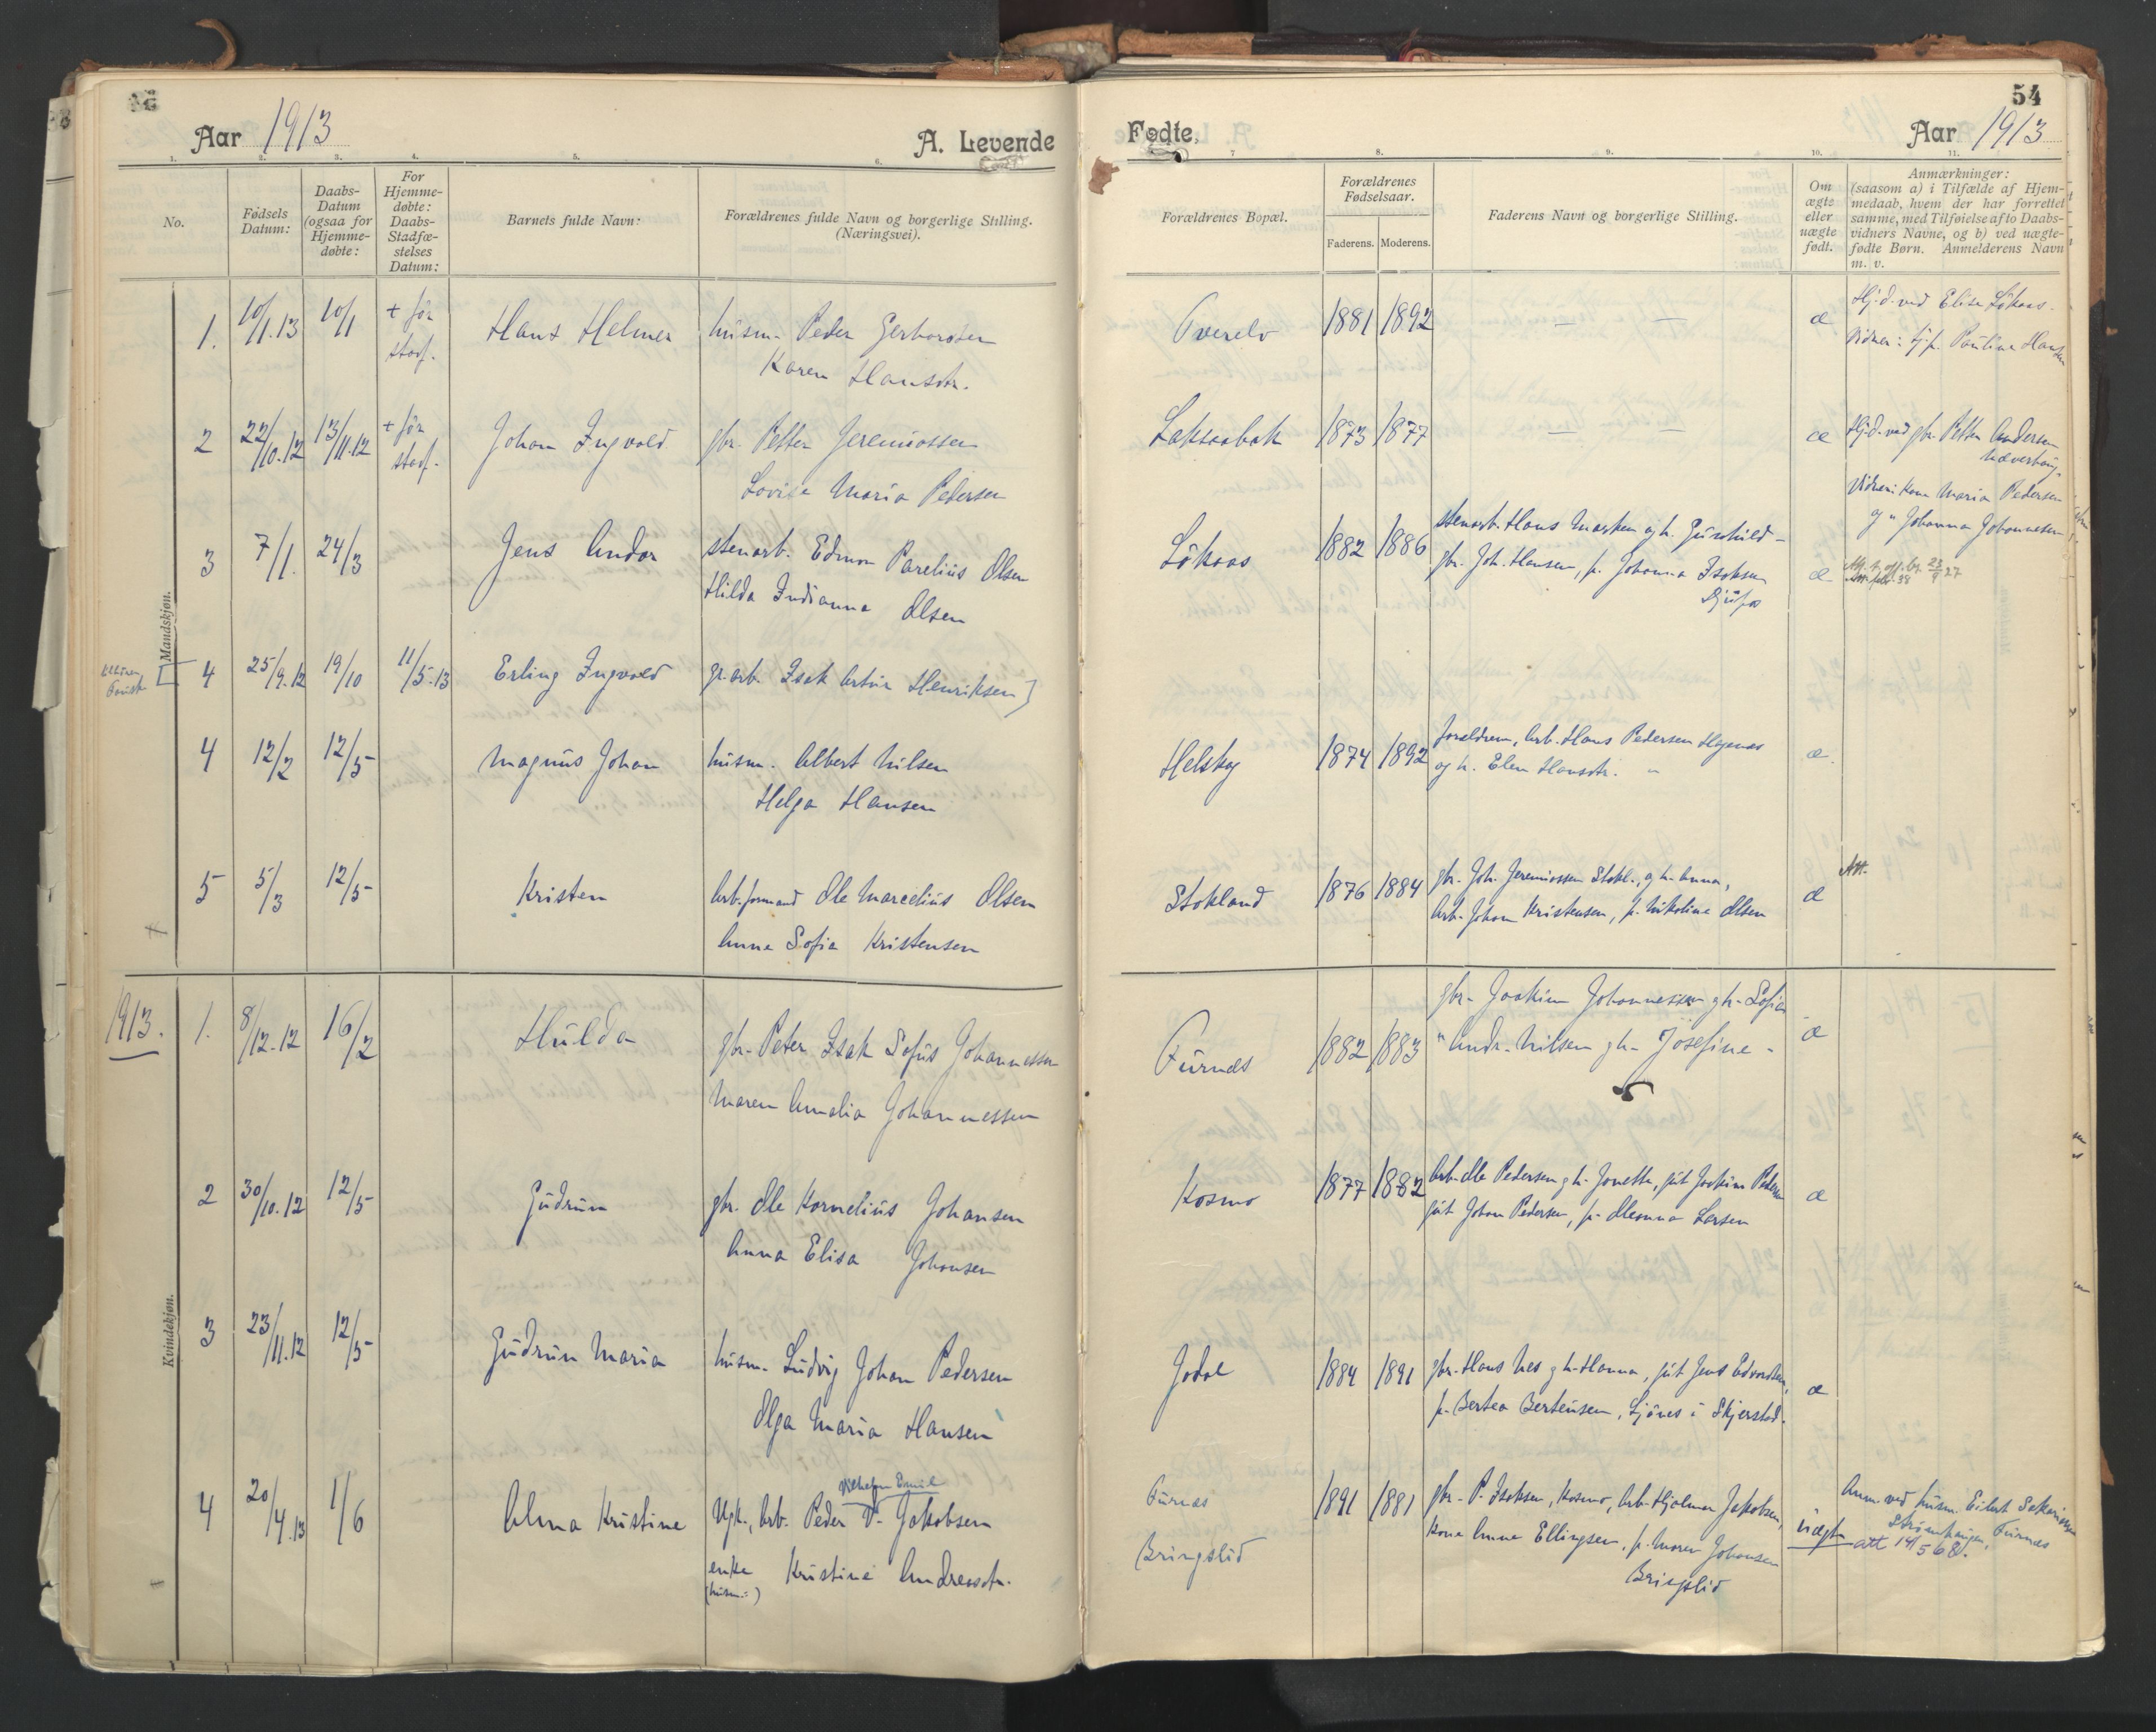 54
Aar 1913
A. Levende
Fødte.
Aar 1913
1. 2. 3. 4. 5. 6. 7 8. 9. 10. 11.
No.
Fødsels Datum:
Daabs-Datum (ogsaa for Hjemme-døbte:
For Hjemme-døbte: Daabs-Stadfæ-stelses Datum:
Barnets fulde Navn:
Forældrenes fulde Navn og borgerlige Stilling. (Næringsvei).
Forældrenes Bopæl.
Forældrenes Fødselsaar.
Faderens. Moderens.
Faderens Navn og borgerlige Stilling.
Om ægte eller uægte født.
Anmærkninger:
(saasom a) i Tilfælde af Hjem-
medaab, hvem der har forrettet
samme, med Tilføielse af to Daabs-
vidners Navne, og b) ved uægte-
fødte Børn. Anmelderens Navn
m. v.
Mandskjøn.
1. 10/1.13 10/1 + før stadf. Hans Helmer husm. Peder Gerhardsen
Karen Hansdtr.
Tverelv 1881 1892 — — æ Hj.d. ved Elise Løkaas.
Vidner: tj.p. Pauline Hansen
2 22/10.12 13/11.12 + før stadf. Johan Ingvald gbr. Petter Jeremiassen
Lovise Maria Pedersen
Laksaabak 1873 1877 — — æ Hj.d. ved gbr. Petter Andersen
Næverhaug.
Vidner: Kone Maria Pedersen
og " Johanna Johannesen
3 7/1. 24/3 Jens Andor stenarb. Edmon Parelius Olsen
Hilda Indianna Olsen
Løkaas 1882 1886 stenarb. Hans Marken og h. Gunhild -
gbr. Joh. Hansen, p. Johanna Isaksen
Djupos
æ.
4 25/9.12 19/10 11/5.13 Erling Ingvald gr.arb. Isak Artur Henriksen]
4 12/2 12/5 Magnus Johan husm. Albert Nilsen
Helga Hansen
Helskog 1874 1892 forældrene, Arb. Hans Pedersen Hagenes
og h. Elen Hansdtr. "
æ.
5 5/3 12/5 Kristen Arb.formand Ole Marcelius Olsen
Anna Sofia Kristensen
Stokland 1876 1884 gbr. Joh. Jeremiassen Stokl., og h. Anna,
Arb. Johan Kristensen, p. Nikoline Olsen
æ Att.
Kvindekjøn.
1913. 1. 8/12.12 16/2 Hulda gbr. Peter Isak Sofus Johannessen
Maren Amalia Johannessen
Furnes 1882 1883 gbr. Joakim Johannessen g h. Sofia
" Andr. Nilsen g h. Josefine -
æ
2 30/10.12 12/5 Gudrun gbr. Ole Kornelius Johansen
Anna Elisa Johansen
Kosmo 1877 1882 Arb. Ole Pedersen g h. Jonette, gut Joakim Pedersen
gut Johan Pedersen, p. Oleanna Larsen
æ
3 23/11.12 12/5 Gudrun Maria husm. Ludvig Johan Pedersen
Olga Maria Hansen
Jodal 1884 1891 gbr. Hans Nes g h. Hanna, gut Jens Edvardsen,
p. Bertea Berteusen, Ljønes i Skjerstad.
æ
4 20/4.13 1/6 Alma Kristine Vilhelm Emil
Ugk., Arb. Peder V. Jakobsen
enke Kristine Andreasdtr.
(husm.:)
Furnes
Bringslid
1891 1881 gbr. P. Isaksen, Kosmo, Arb. Hjalmar Jakobsen,
Kone Anna Ellingsen, p. Maren Johansen
Bringslid
uægte Anm. ved husm. Eilert Sakariassen
Strømhaugen, Furnes
att 14/5 68.